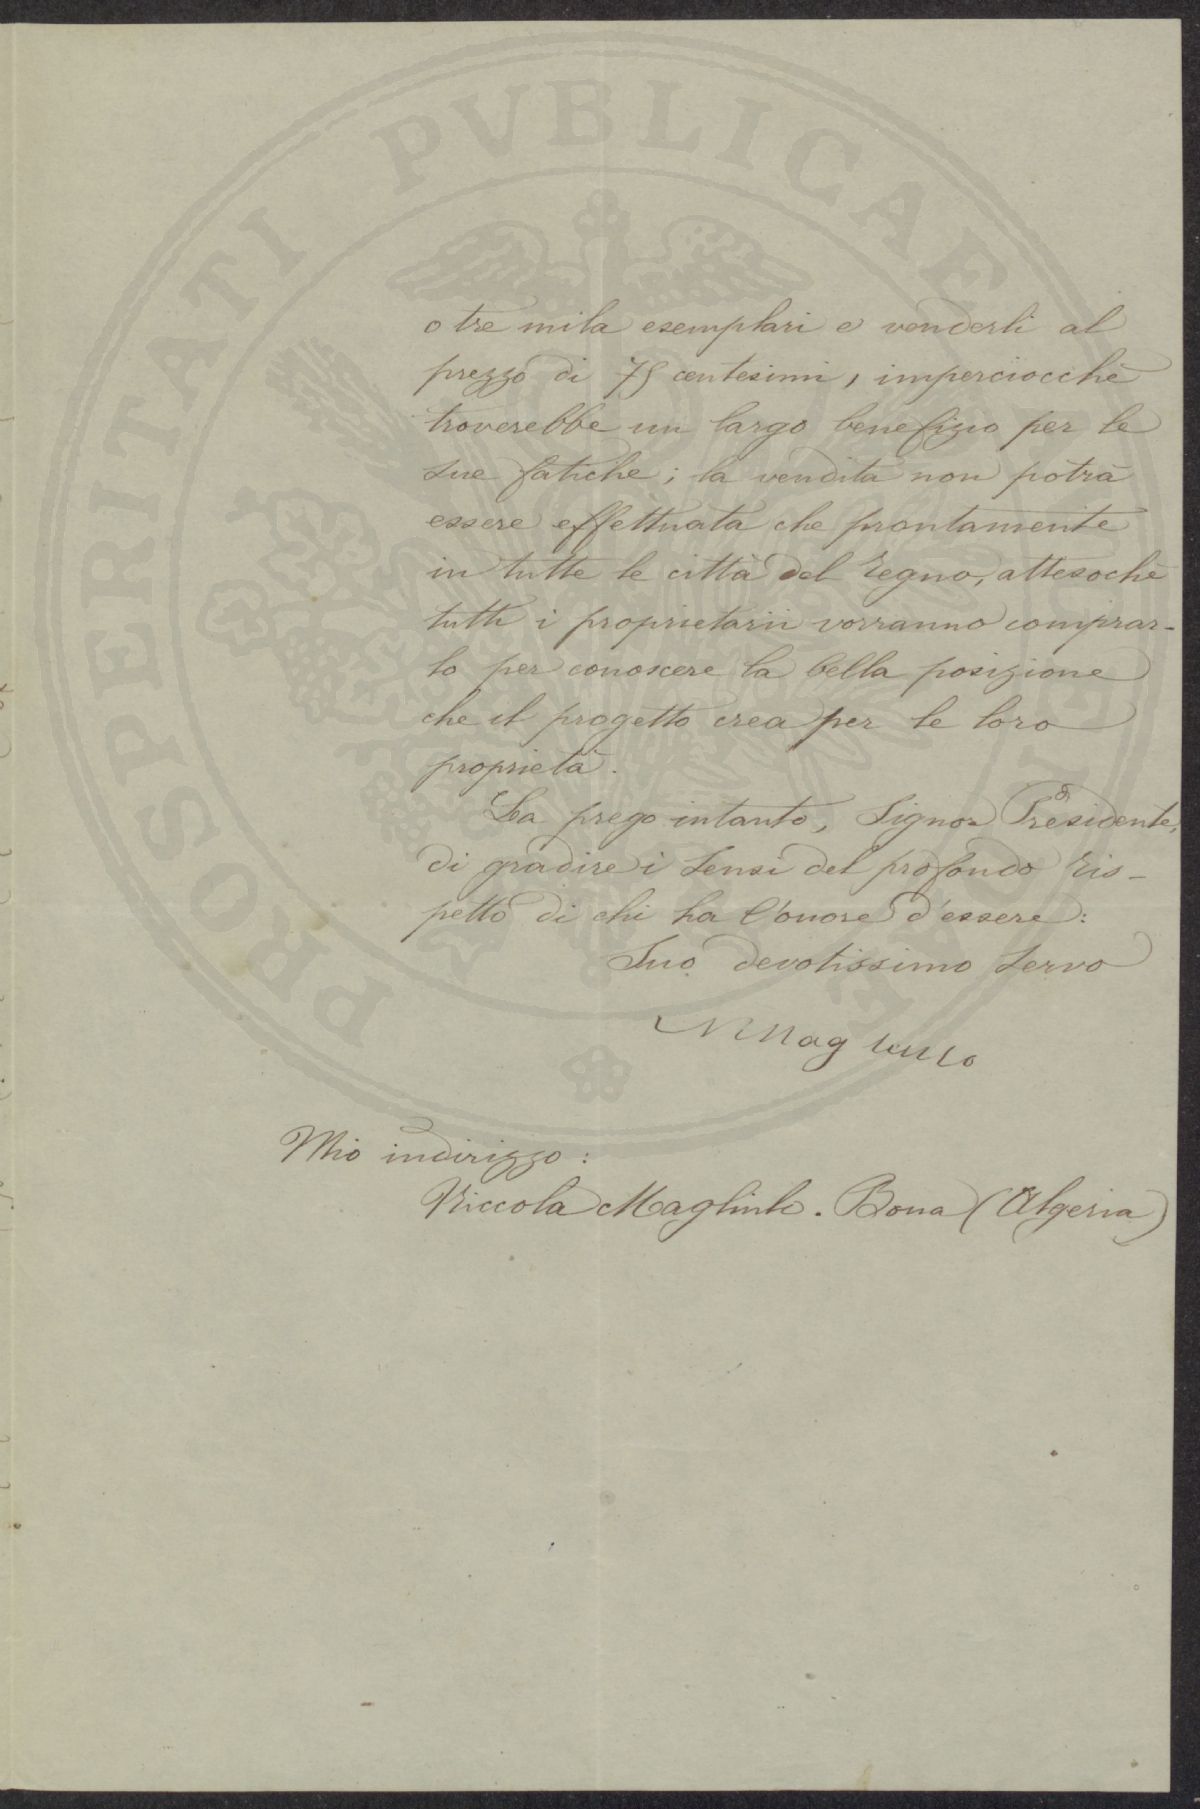 o tre mila esemplari e venderli al
prezzo di 75 centesimi, imperciocchè
troverebbe un largo benefizio per le
sue fatiche; la vendita non potrà
essere effettuata che prontamente
in tutte le città del regno, attesochè
tutti i proprietarii vorranno comprar-
lo per conoscere la bella posizione
che il progetto crea per le loro
proprietà.
La prego intanto, Signor Presidente,
di gradire i sensi del profondo ris-
petto di chi ha l'onore d'essere:
Suo devotissimo servo
Mio indirizzo:
Niccola Magliulo. Bona (Algeria)
PROSPERITATI PVBLICAE